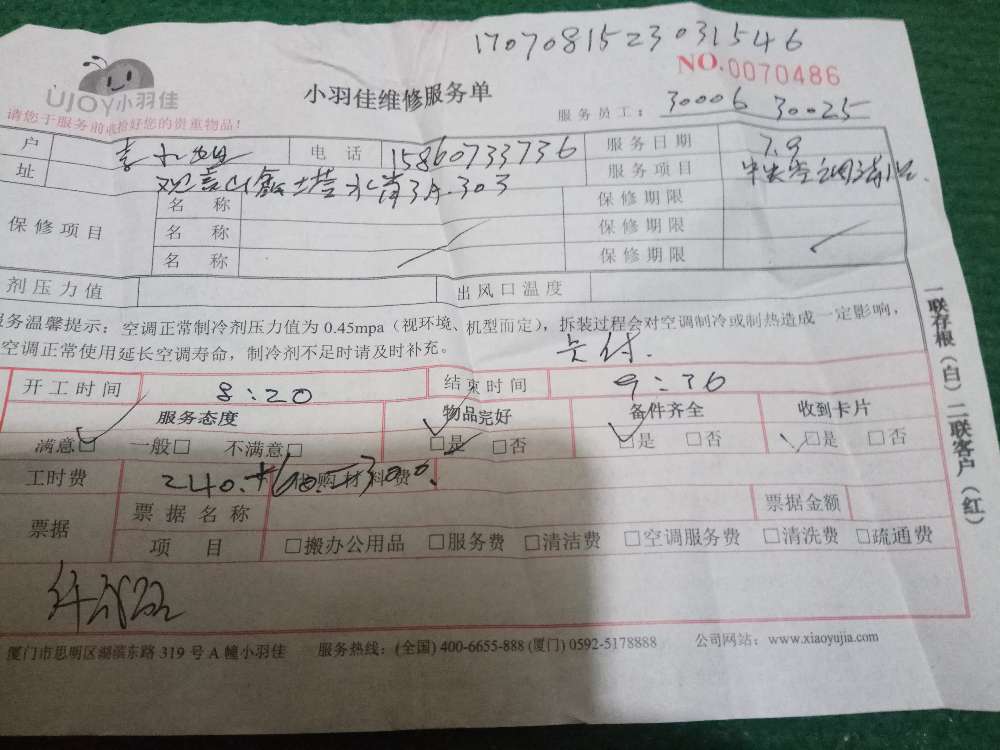 1707081523031546
NO.0070486
UJOY小羽佳
小羽佳维修服务单
请您于服务前收拾好您的贵重物品！
服务员工： 30006 30025
户 电话 15860733736 服务日期 7.9
址 3A.303 服务项目 中央空调清洗.
保修项目 名称 保修期限
名称 保修期限
名称 保修期限
剂压力值 出风口温度
务温馨提示：空调正常制冷剂压力值为 0.45mpa（视环境、机型而定），拆装过程会对空调制冷或制热造成一定影响，
空调正常使用延长空调寿命，制冷剂不足时请及时补充。
卡付.
开工时间 8:20 结束时间 9:36
服务态度 物品完好 备件齐全 收到卡片
满意□ 一般□ 不满意□ □是 □否 □是 □否 □是 □否
工时费 240.+60.=300. 购材料费
票据 票据名称 票据金额
项目 □搬办公用品 □服务费 □清洁费 □空调服务费 □清洗费 □疏通费
一联存根（白）二联客户（红）
厦门市思明区湖滨东路 319 号 A 幢小羽佳 服务热线：(全国) 400-6655-888 (厦门) 0592-5178888 公司网站：www.xiaoyujia.com